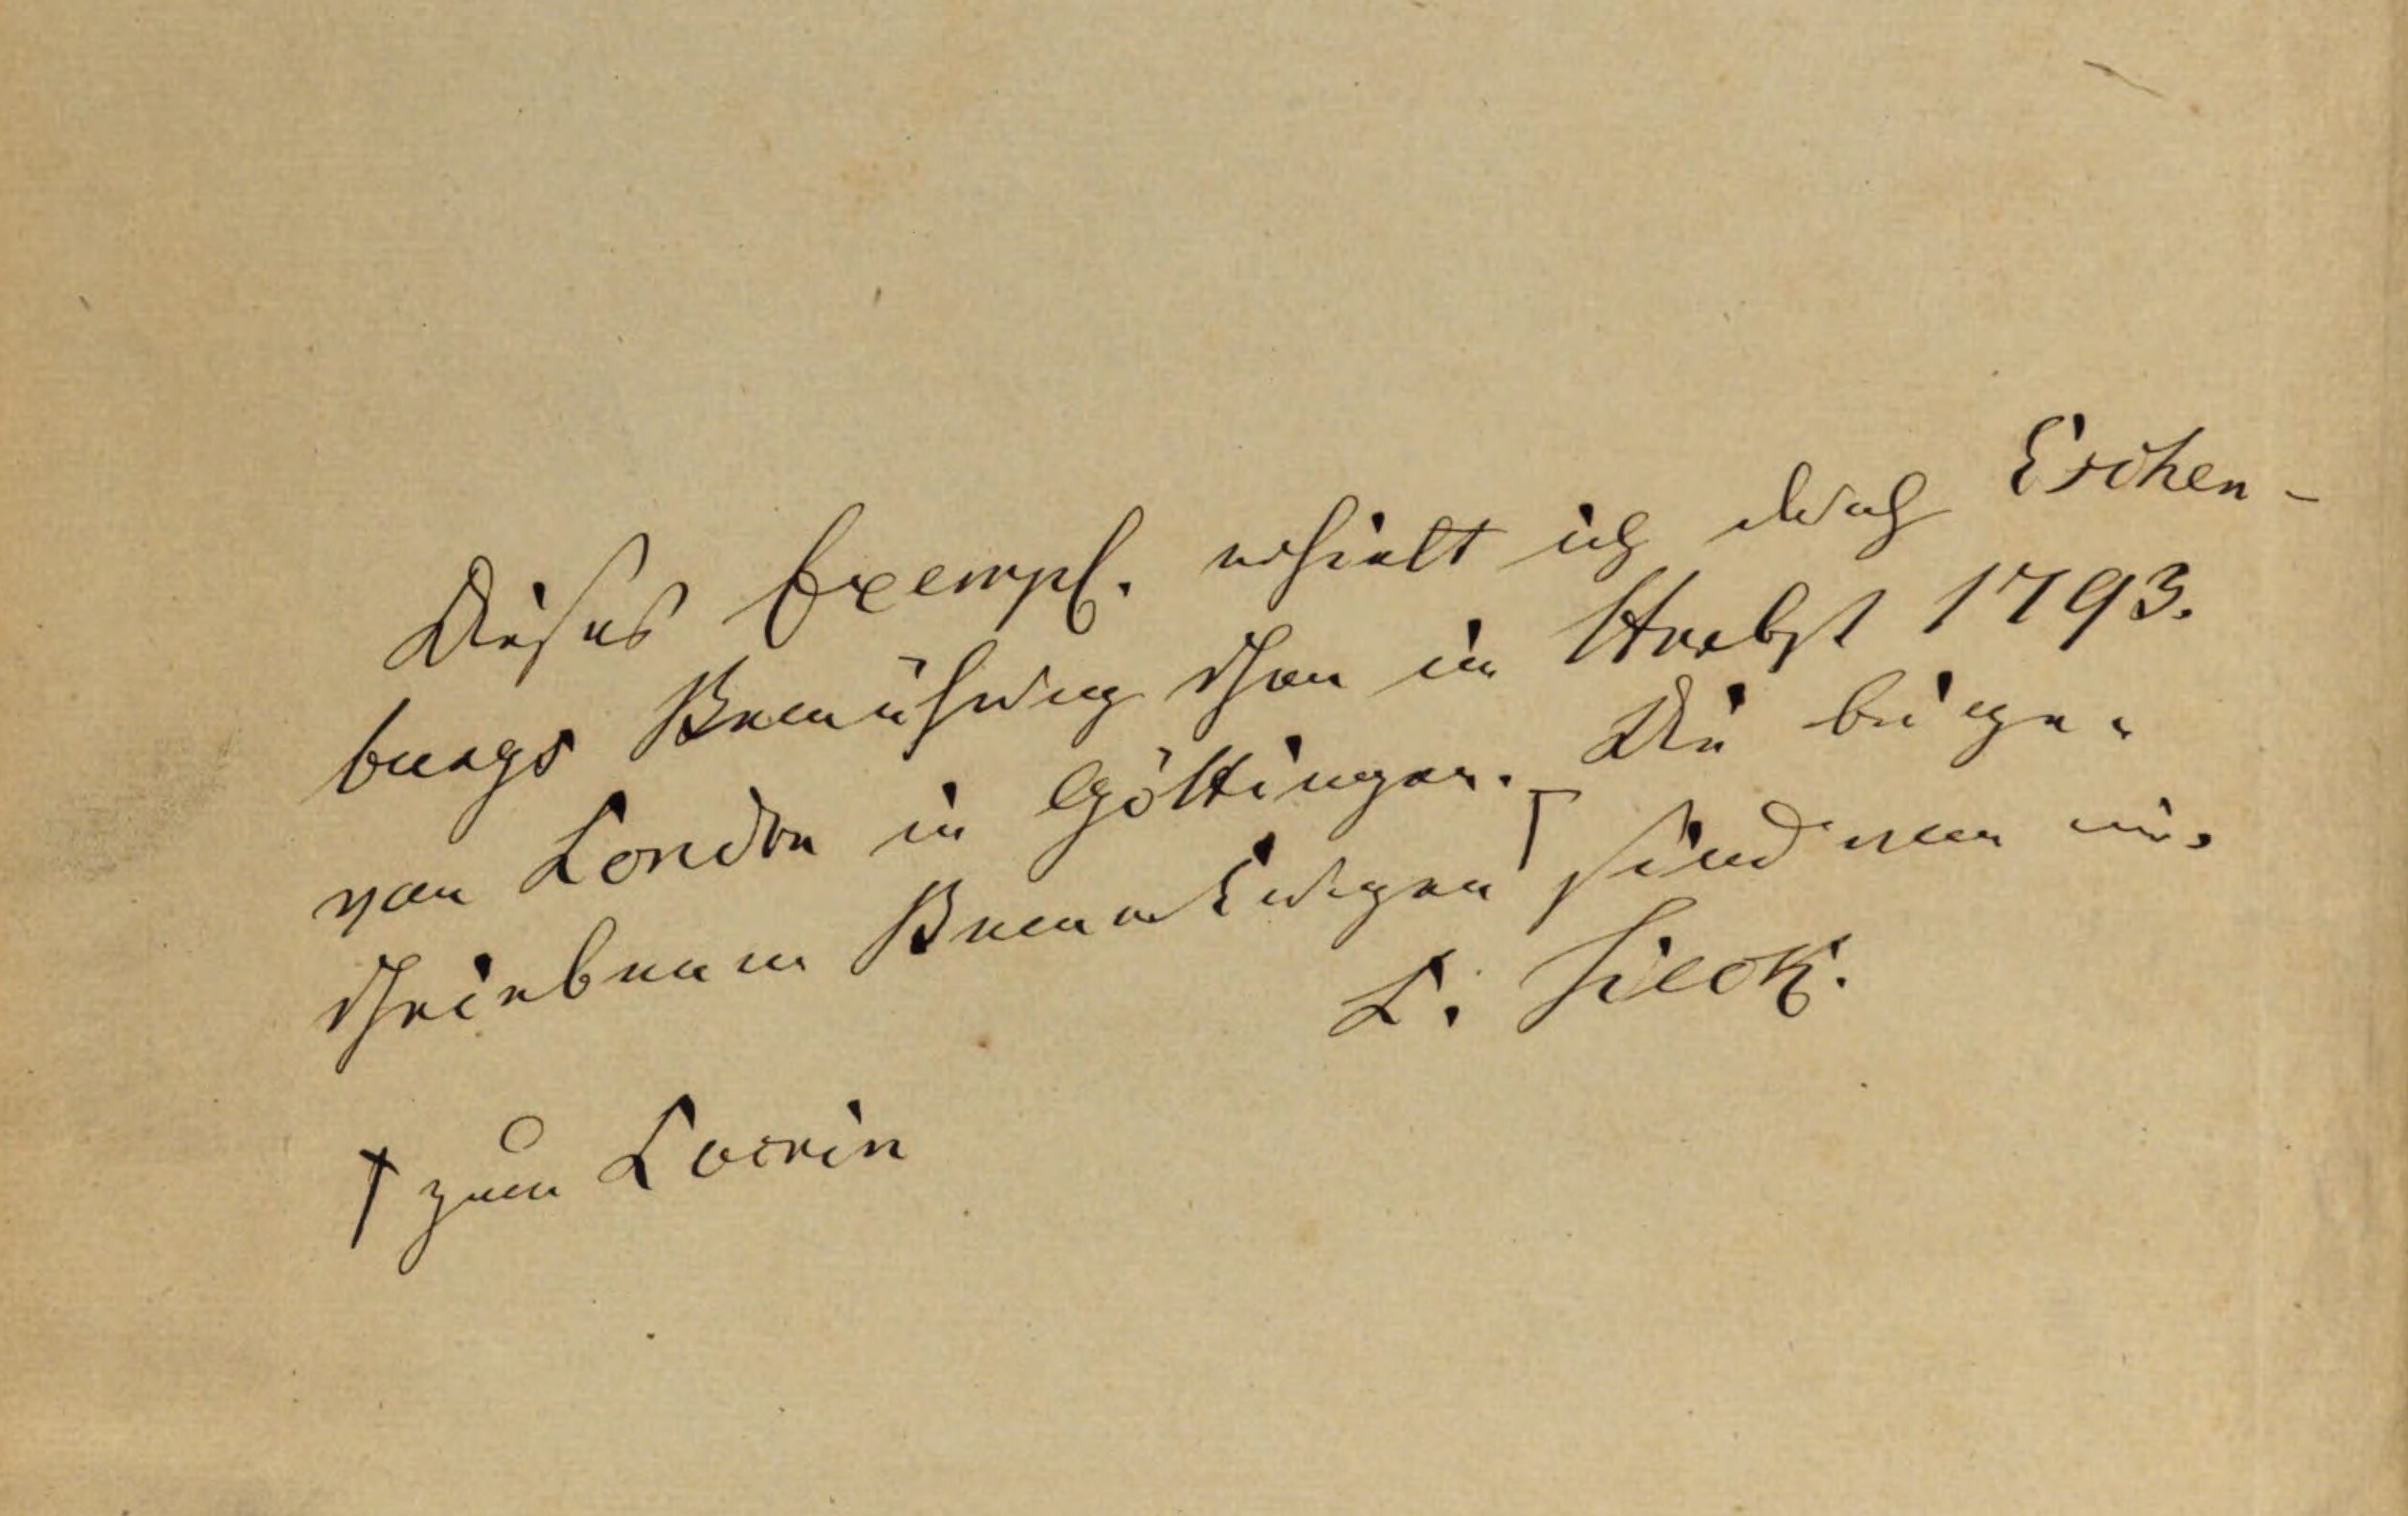 Dieses Exempl. erhielt ich durch Eschen-
burgs Bemühung schon im Herbst 1793.
von London in Göttingen. Die beige-
schriebenen Bemerkungen † sind von mir.
L. Tieck.
† zum Locrin